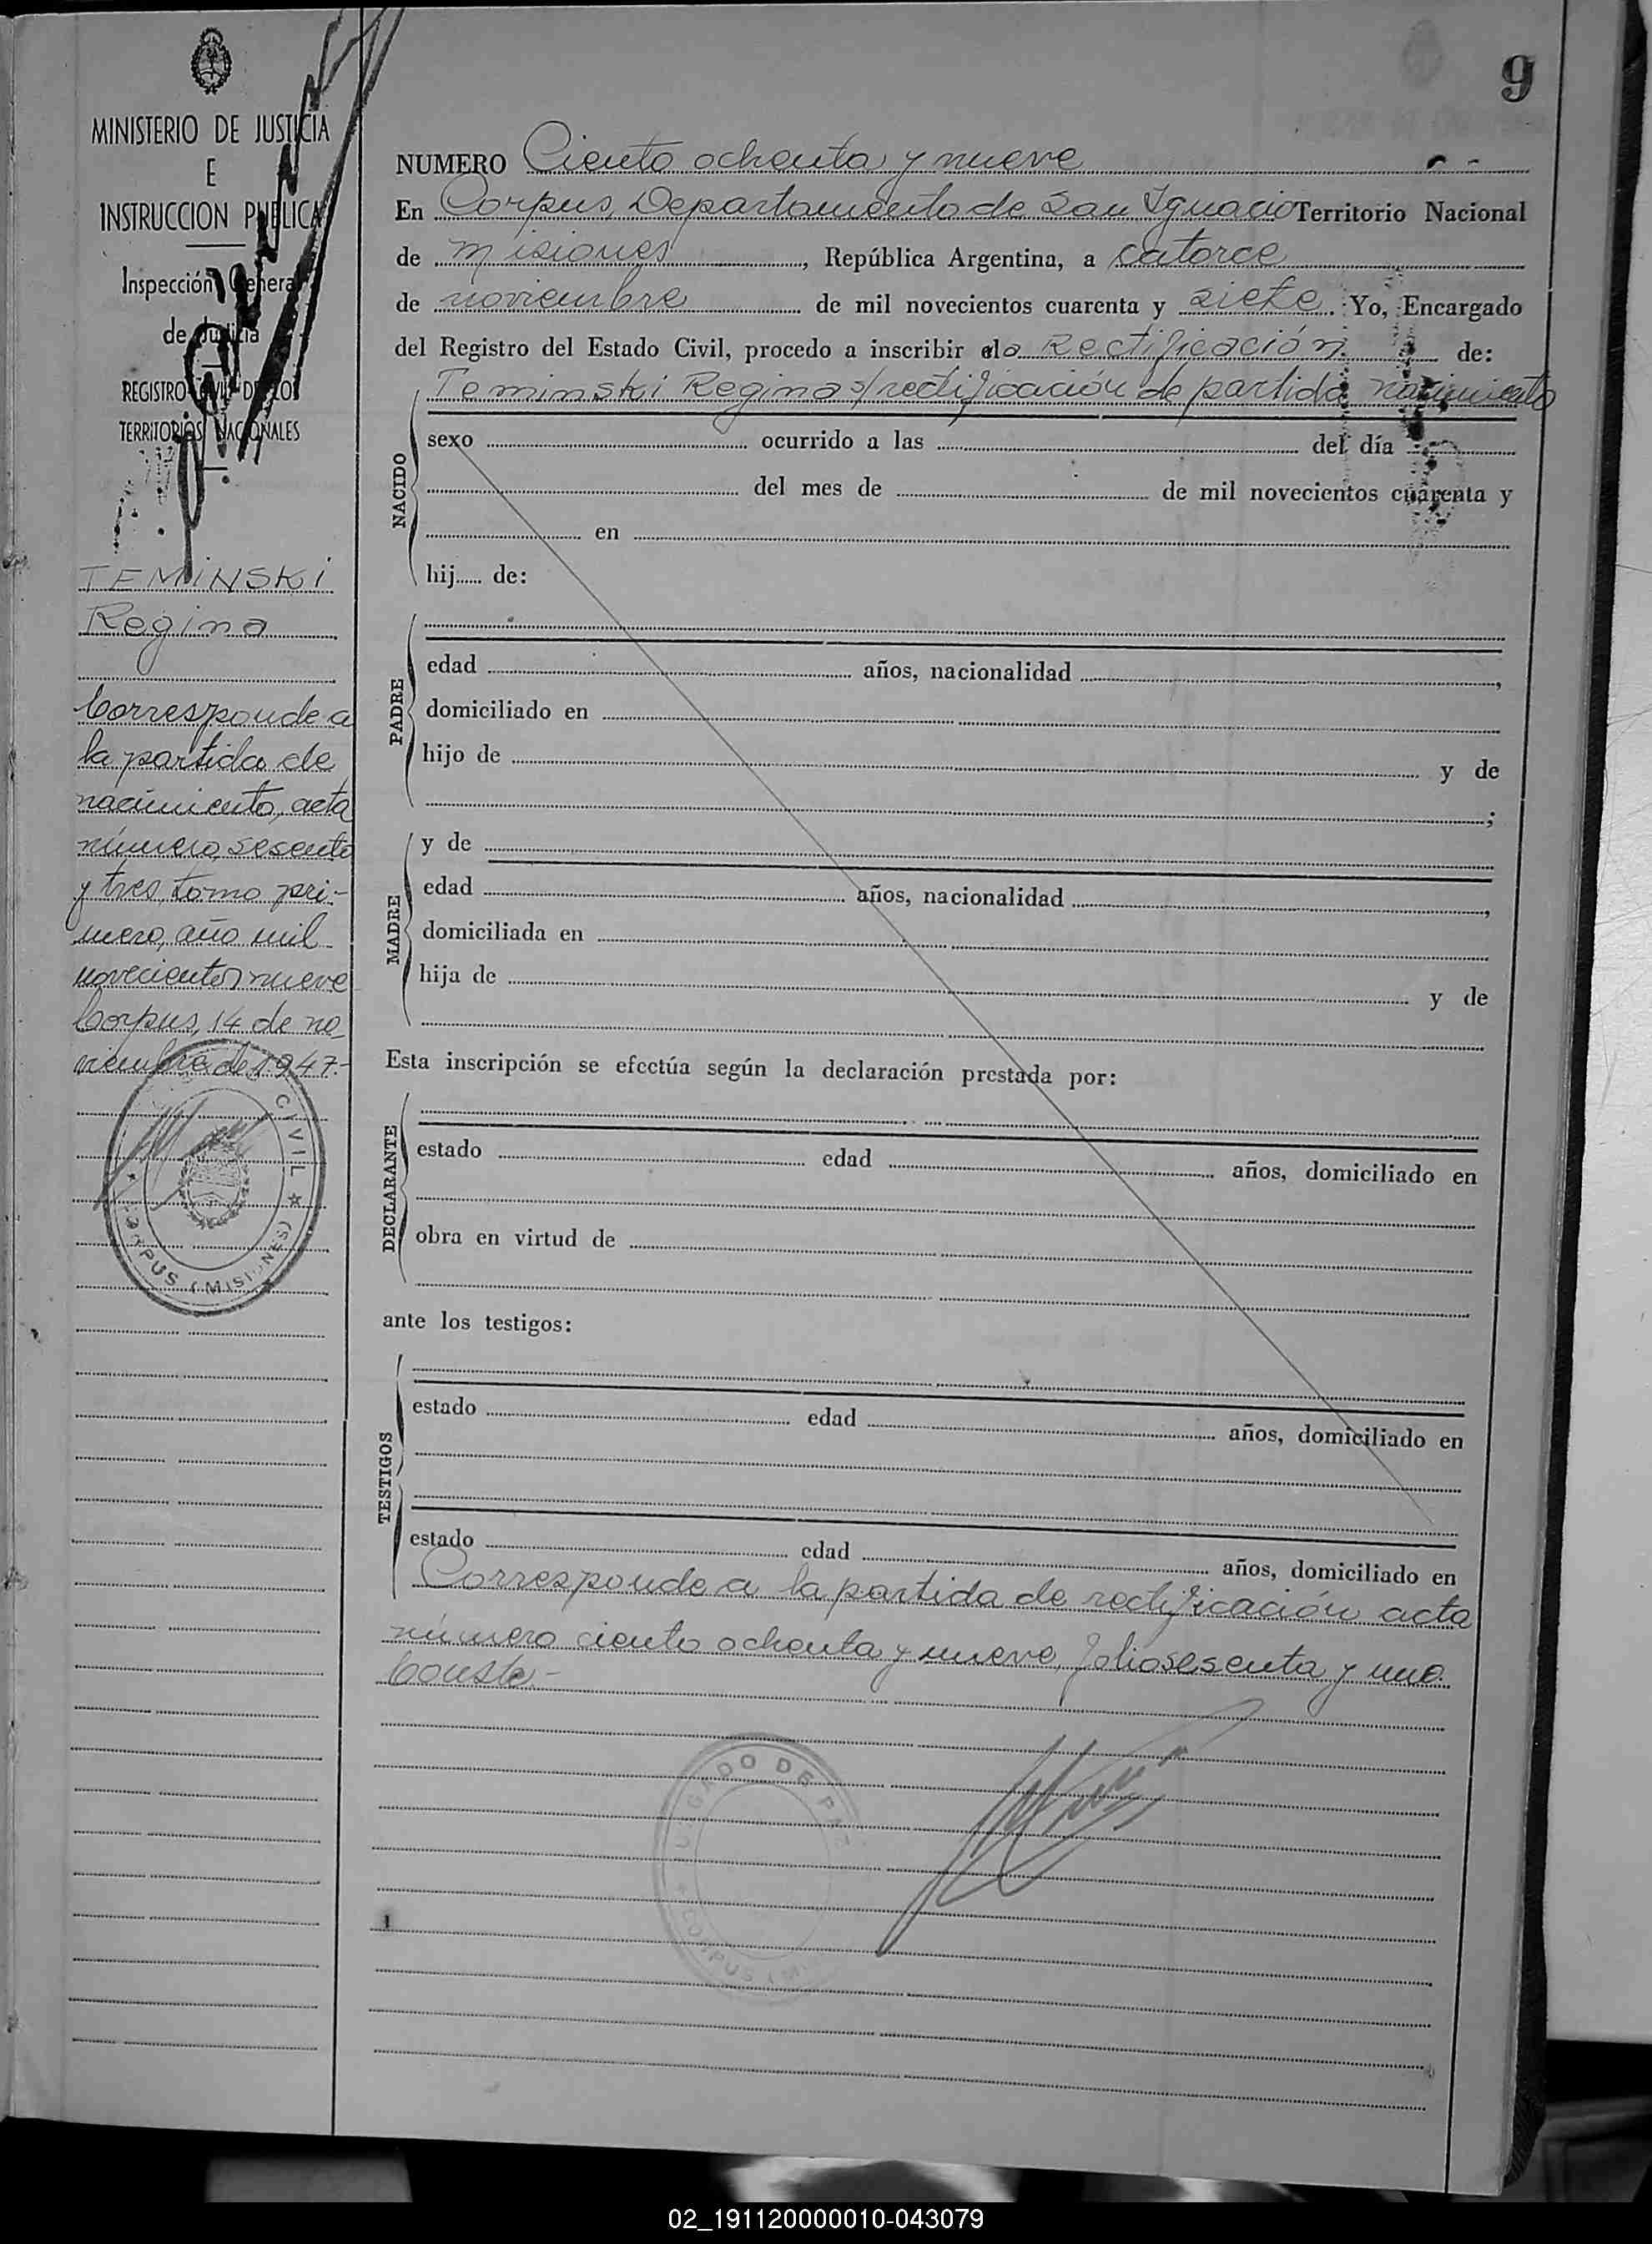 9
MINISTERIO DE JUSTICIA
E
INSTRUCCION PUBLICA
Inspección General
de Justicia
REGISTRO CIVIL DE LOS
TERRITORIOS NACIONALES
TEMINSKI
Regina
Corresponde a
la partida de
nacimiento, acta
número, sesenta
y tres, tomo pri-
mero, año mil
novecientos nueve
Corpus, 14 de no-
viembre de 1947.-
CIVIL ★ CORPUS (MISIONES)
NUMERO Ciento ochenta y nueve
En Corpus, Departamento de San Ignacio Territorio Nacional
de Misiones, República Argentina, a catorce
de noviembre de mil novecientos cuarenta y siete. Yo, Encargado
del Registro del Estado Civil, procedo a inscribir la Rectificación de:
Teminski Regina s/rectificación de partida nacimiento
NACIDO
sexo ocurrido a las del día
del mes de de mil novecientos cuarenta y
en
hij de:
PADRE
edad años, nacionalidad ,
domiciliado en
hijo de y de
;
MADRE
y de
edad años, nacionalidad ,
domiciliada en
hija de y de
Esta inscripción se efectúa según la declaración prestada por:
DECLARANTE
estado edad años, domiciliado en
obra en virtud de
ante los testigos:
TESTIGOS
estado edad años, domiciliado en
estado edad años, domiciliado en
Corresponde a la partida de rectificación acta
número ciento ochenta y nueve, folio sesenta y uno.
Conste.-
JUZGADO DE PAZ
CORPUS (M
02_191120000010-043079